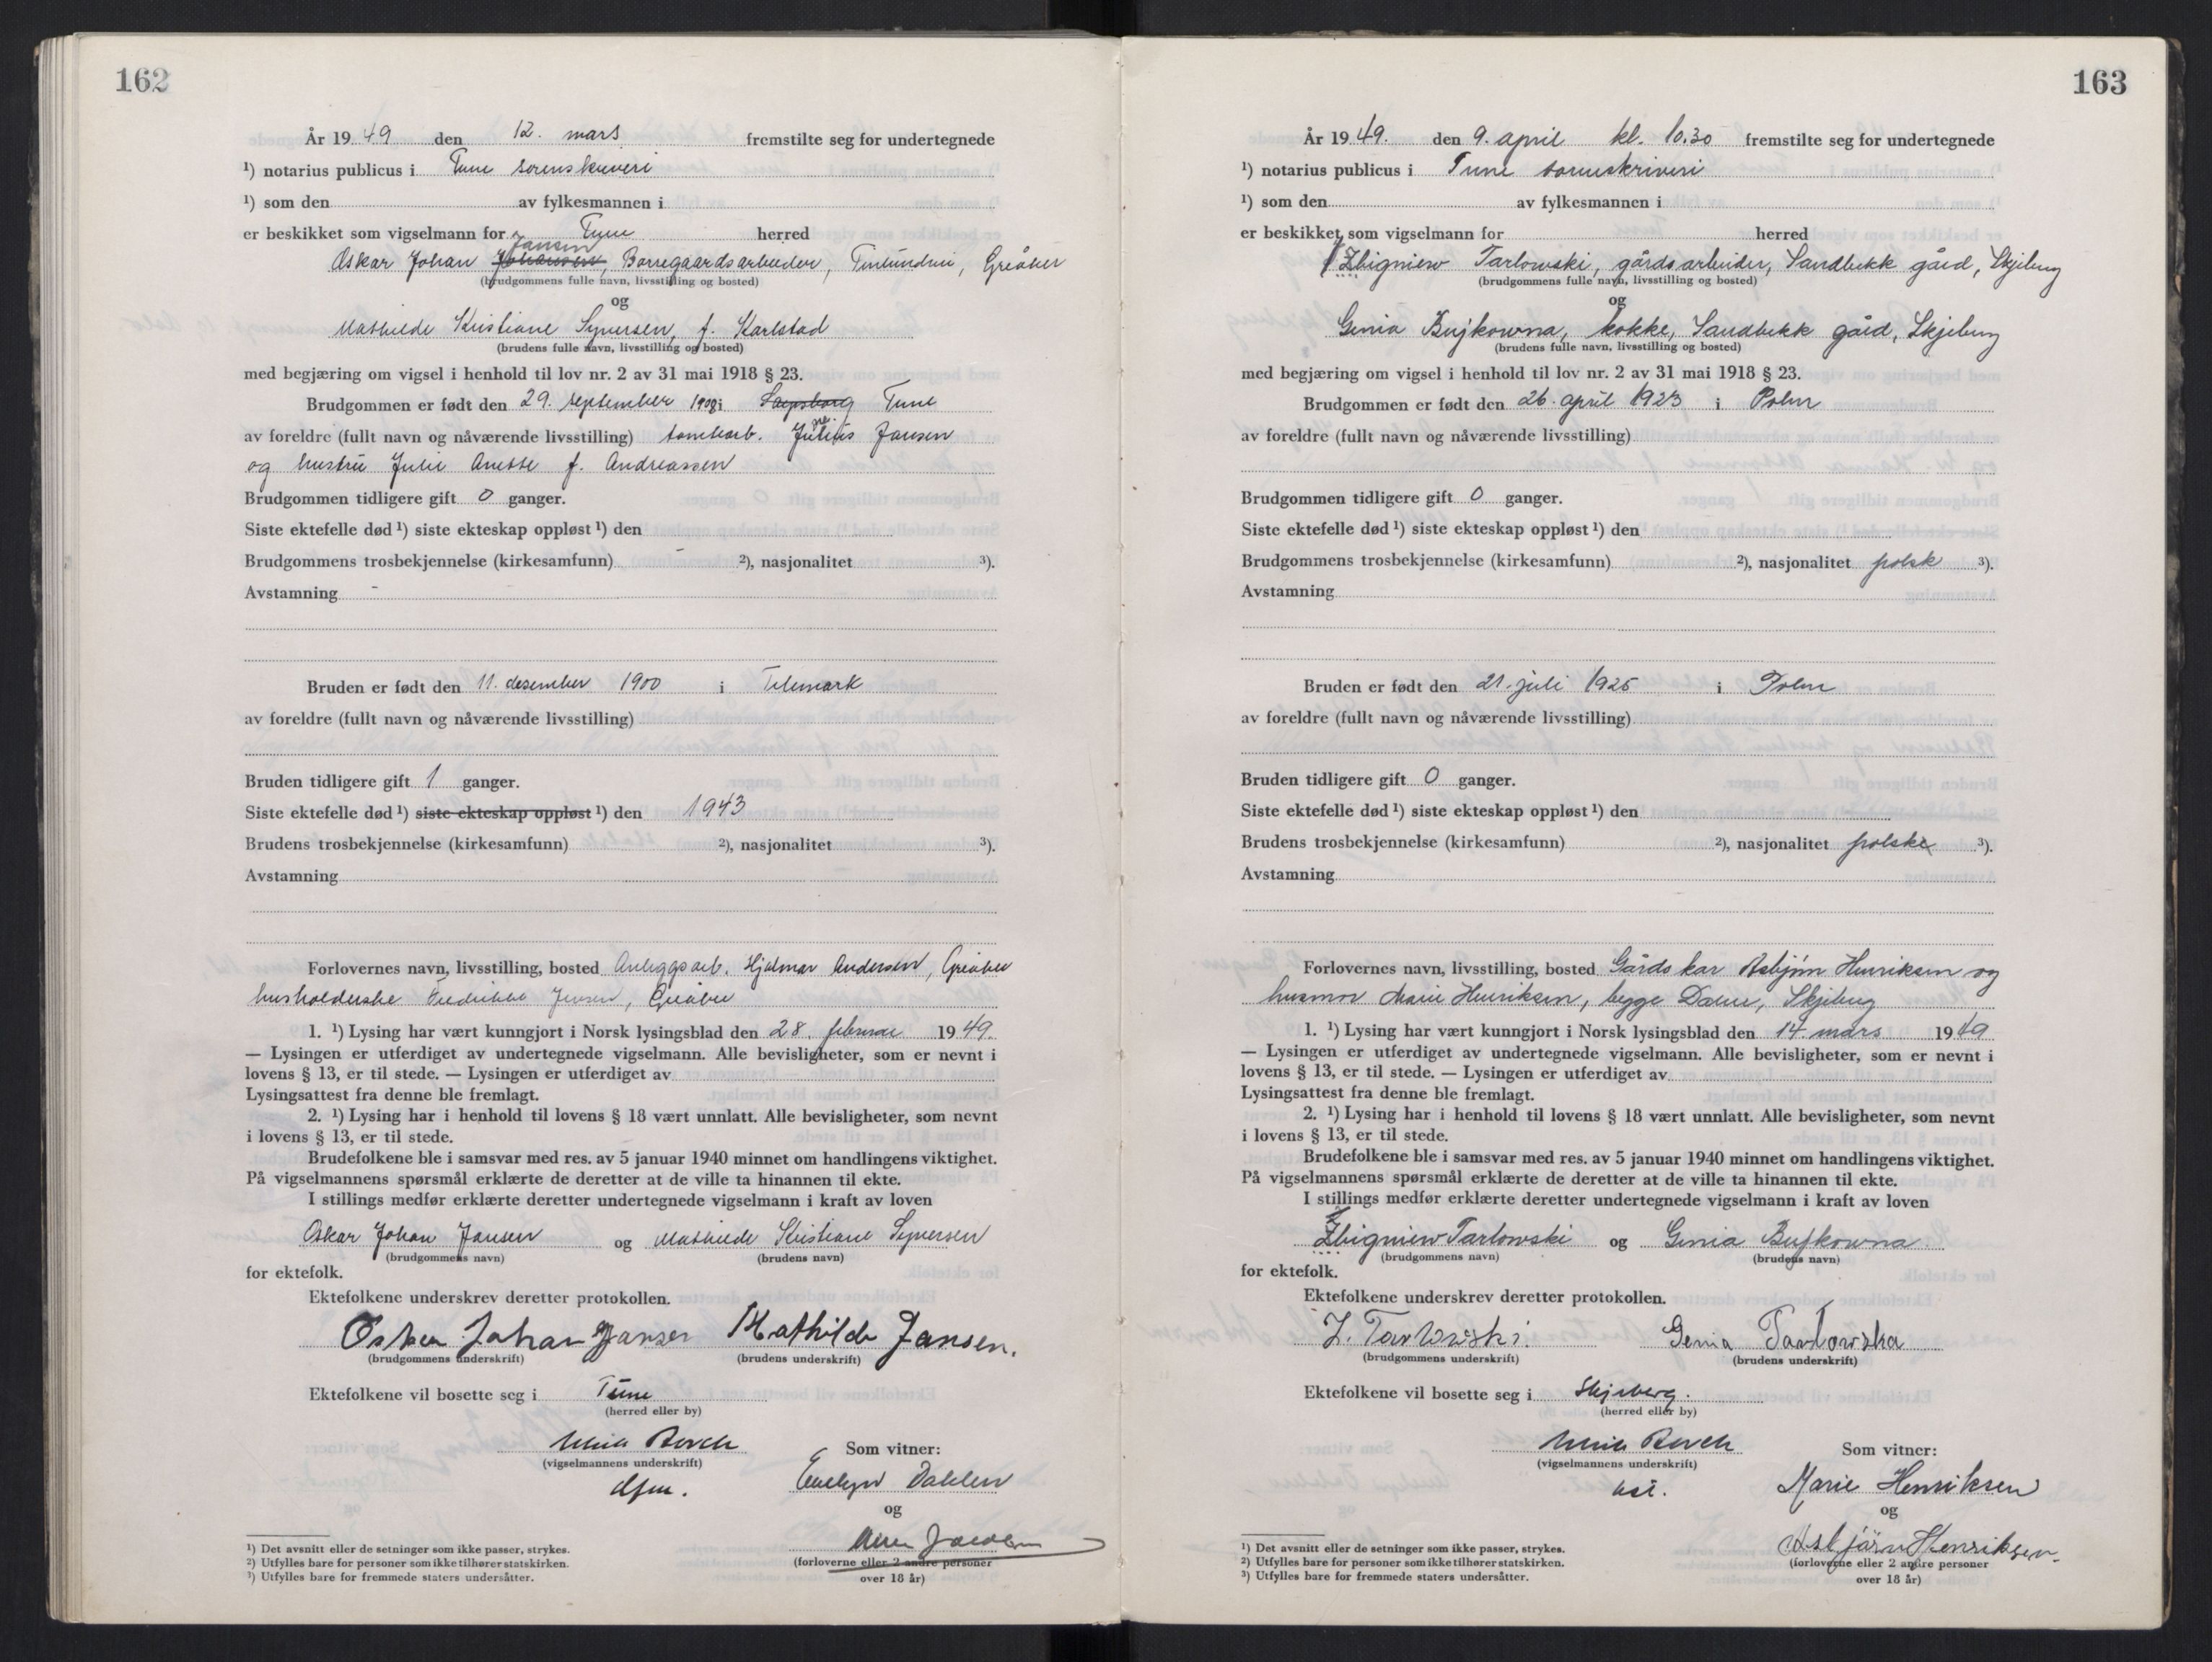 162
År 1949 den 12. mars fremstilte seg for undertegnede
¹) notarius publicus i Tune sorenskriveri
¹) som den av fylkesmannen i
er beskikket som vigselmann for Tune herred
Jansen
Oskar Johan Johansen, Borregaardsarbeider, Tindlundlii, Greåker
(brudgommens fulle navn, livsstilling og bosted)
og
Mathilde Kristiane Syversen, f. Karlstad
(brudens fulle navn, livsstilling og bosted)
med begjæring om vigsel i henhold til lov nr. 2 av 31 mai 1918 § 23.
Brudgommen er født den 29. september 1908 i Sarpsborg Tune
av foreldre (fullt navn og nåværende livsstilling) tomtearb. Julius Jansen
og hustru Julie Anette f. Andreassen
Brudgommen tidligere gift 0 ganger.
Siste ektefelle død ¹) siste ekteskap oppløst ¹) den
Brudgommens trosbekjennelse (kirkesamfunn) - ²), nasjonalitet ³).
Avstamning -
Bruden er født den 11. desember 1900 i Telemark
av foreldre (fullt navn og nåværende livsstilling)
Bruden tidligere gift 1 ganger.
Siste ektefelle død ¹) siste ekteskap oppløst ¹) den 1943
Brudens trosbekjennelse (kirkesamfunn) ²), nasjonalitet ³).
Avstamning
Forlovernes navn, livsstilling, bosted Anleggsarb. Hjalmar Andersen, Greåker
husholderske Fredrikke Jensen, Greåker
1. ¹) Lysing har vært kunngjort i Norsk lysingsblad den 28. februar 1949.
— Lysingen er utferdiget av undertegnede vigselmann. Alle bevisligheter, som er nevnt i
lovens § 13, er til stede. — Lysingen er utferdiget av
Lysingsattest fra denne ble fremlagt.
2. ¹) Lysing har i henhold til lovens § 18 vært unnlatt. Alle bevisligheter, som nevnt
i lovens § 13, er til stede.
Brudefolkene ble i samsvar med res. av 5 januar 1940 minnet om handlingens viktighet.
På vigselmannens spørsmål erklærte de deretter at de ville ta hinannen til ekte.
I stillings medfør erklærte deretter undertegnede vigselmann i kraft av loven
Oskar Johan Jansen og Mathilde Kristiane Syversen
(brudgommens navn) (brudens navn)
for ektefolk.
Ektefolkene underskrev deretter protokollen.
Oskar Johan Jansen Mathilde Jansen.
(brudgommens underskrift) (brudens underskrift)
Ektefolkene vil bosette seg i Tune
(herred eller by)
Borch Som vitner:
(vigselmannens underskrift)
Dahlen
og
(forloverne eller 2 andre personer
over 18 år)
¹) Det avsnitt eller de setninger som ikke passer, strykes.
²) Utfylles bare for personer som ikke tilhører statskirken.
³) Utfylles bare for fremmede staters undersåtter.
163
År 1949. den 9. april kl. 10.30 fremstilte seg for undertegnede
¹) notarius publicus i Tune sorenskriveri
¹) som den av fylkesmannen i
er beskikket som vigselmann for herred
Zbigniew Tarlowski, gårdsarbeider, Sandbekk gård, Skjeberg
(brudgommens fulle navn, livsstilling og bosted)
og
Genia Bujkowna, kokke, Sandbekk gård, Skjeberg
(brudens fulle navn, livsstilling og bosted)
med begjæring om vigsel i henhold til lov nr. 2 av 31 mai 1918 § 23.
Brudgommen er født den 26. april 1923 i Polen
av foreldre (fullt navn og nåværende livsstilling)
Brudgommen tidligere gift 0 ganger.
Siste ektefelle død ¹) siste ekteskap oppløst ¹) den
Brudgommens trosbekjennelse (kirkesamfunn) ²), nasjonalitet polsk ³).
Avstamning
Bruden er født den 21. juli 1925 i Polen
av foreldre (fullt navn og nåværende livsstilling)
Bruden tidligere gift 0 ganger.
Siste ektefelle død ¹) siste ekteskap oppløst ¹) den
Brudens trosbekjennelse (kirkesamfunn) ²), nasjonalitet polsk ³).
Avstamning
Forlovernes navn, livsstilling, bosted Gårdskar Asbjörn Henriksen og
husmor Marie Henriksen, begge Skjeberg
1. ¹) Lysing har vært kunngjort i Norsk lysingsblad den 14. mars 1949
— Lysingen er utferdiget av undertegnede vigselmann. Alle bevisligheter, som er nevnt i
lovens § 13, er til stede. — Lysingen er utferdiget av
Lysingsattest fra denne ble fremlagt.
2. ¹) Lysing har i henhold til lovens § 18 vært unnlatt. Alle bevisligheter, som nevnt
i lovens § 13, er til stede.
Brudefolkene ble i samsvar med res. av 5 januar 1940 minnet om handlingens viktighet.
På vigselmannens spørsmål erklærte de deretter at de ville ta hinannen til ekte.
I stillings medfør erklærte deretter undertegnede vigselmann i kraft av loven
Zbigniew Tarlowski og Genia Bujkowna
(brudgommens navn) (brudens navn)
for ektefolk.
Ektefolkene underskrev deretter protokollen.
Z. Tarlowski. Genia Tarlowska
(brudgommens underskrift) (brudens underskrift)
Ektefolkene vil bosette seg i Skjeberg.
(herred eller by)
Borch Som vitner:
(vigselmannens underskrift)
Marie Henriksen
og
Asbjörn Henriksen.
(forloverne eller 2 andre personer
over 18 år)
¹) Det avsnitt eller de setninger som ikke passer, strykes.
²) Utfylles bare for personer som ikke tilhører statskirken.
³) Utfylles bare for fremmede staters undersåtter.